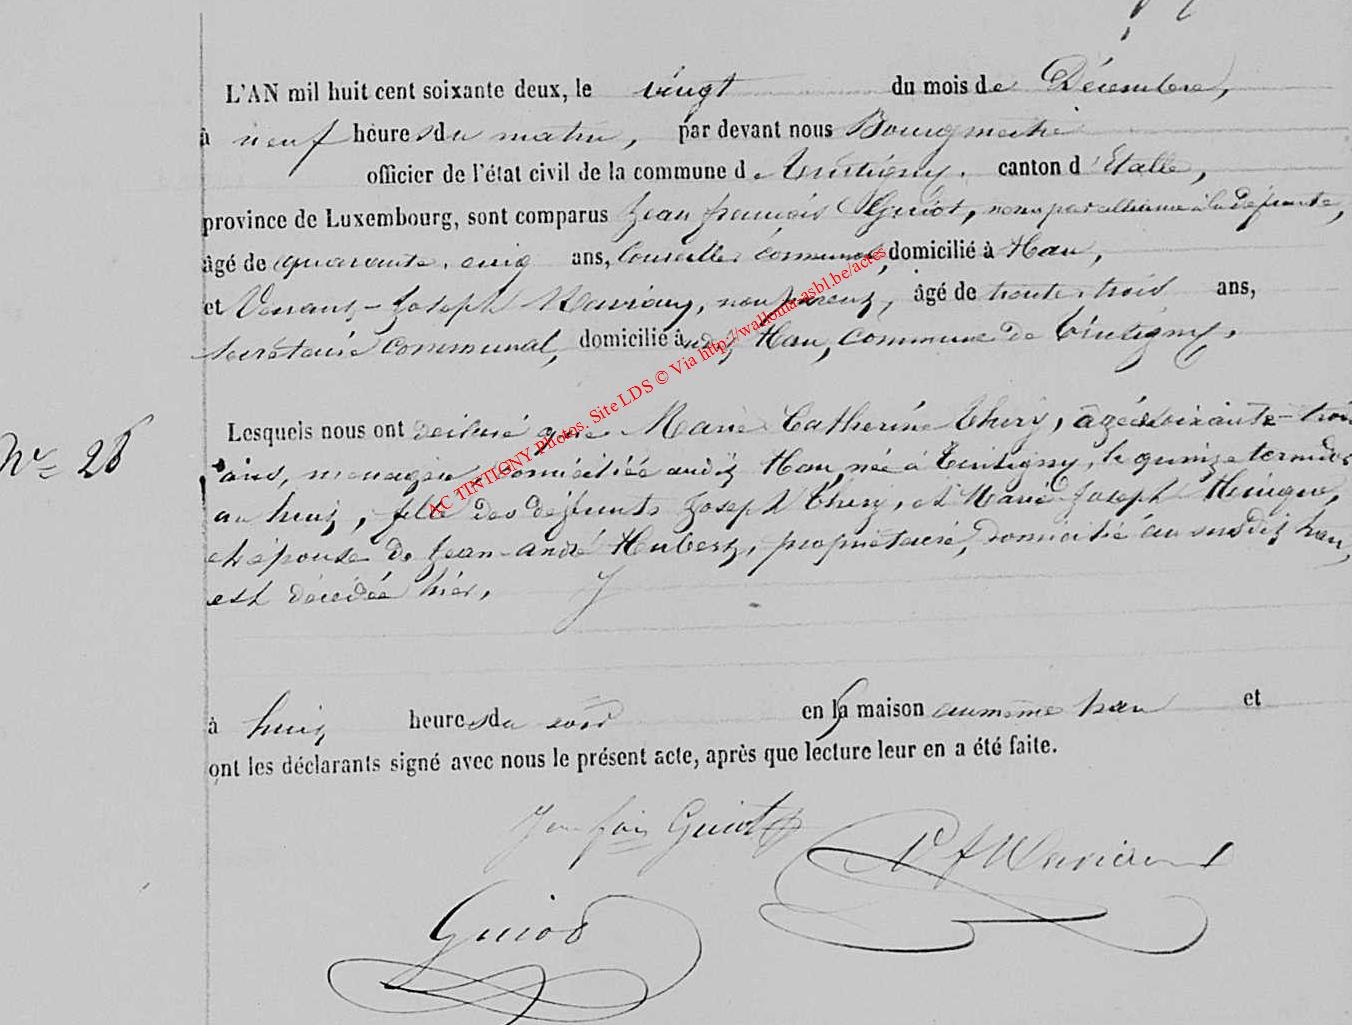 L'AN mil huit cent soixante deux, le vingt du mois de Décembre,
à neuf heures du matin, par devant nous Bourgmestre
officier de l'état civil de la commune de Tintigny, canton d'Etalle,
province de Luxembourg, sont comparus Jean françois Guiot, non par alliance à la défunte,
âgé de quarante cinq ans, Conseiller communal, domicilié à Han,
et Joseph non parent, âgé de trente trois ans,
secrétaire communal, domicilié audit Han, commune de Tintigny.
Nº 28
Lesquels nous ont déclaré que Marie Catherine Thiry, âgée soixante-trois
ans, ménagère, domiciliée audit Han, née à Tintigny, le quinze termidor
an huit, fille des défunts Joseph Thiry, et Marie Joseph
et épouse de Jean-André Hubert, propriétaire, domicilié au susdit han,
est décédée hier,
à huit heures du soir en sa maison au même han et
ont les déclarants signé avec nous le présent acte, après que lecture leur en a été faite.
Jean fçois Guiot
Guiot
AC TINTIGNY Photos. Site LDS © Via http://wallonia-asbl.be/actes